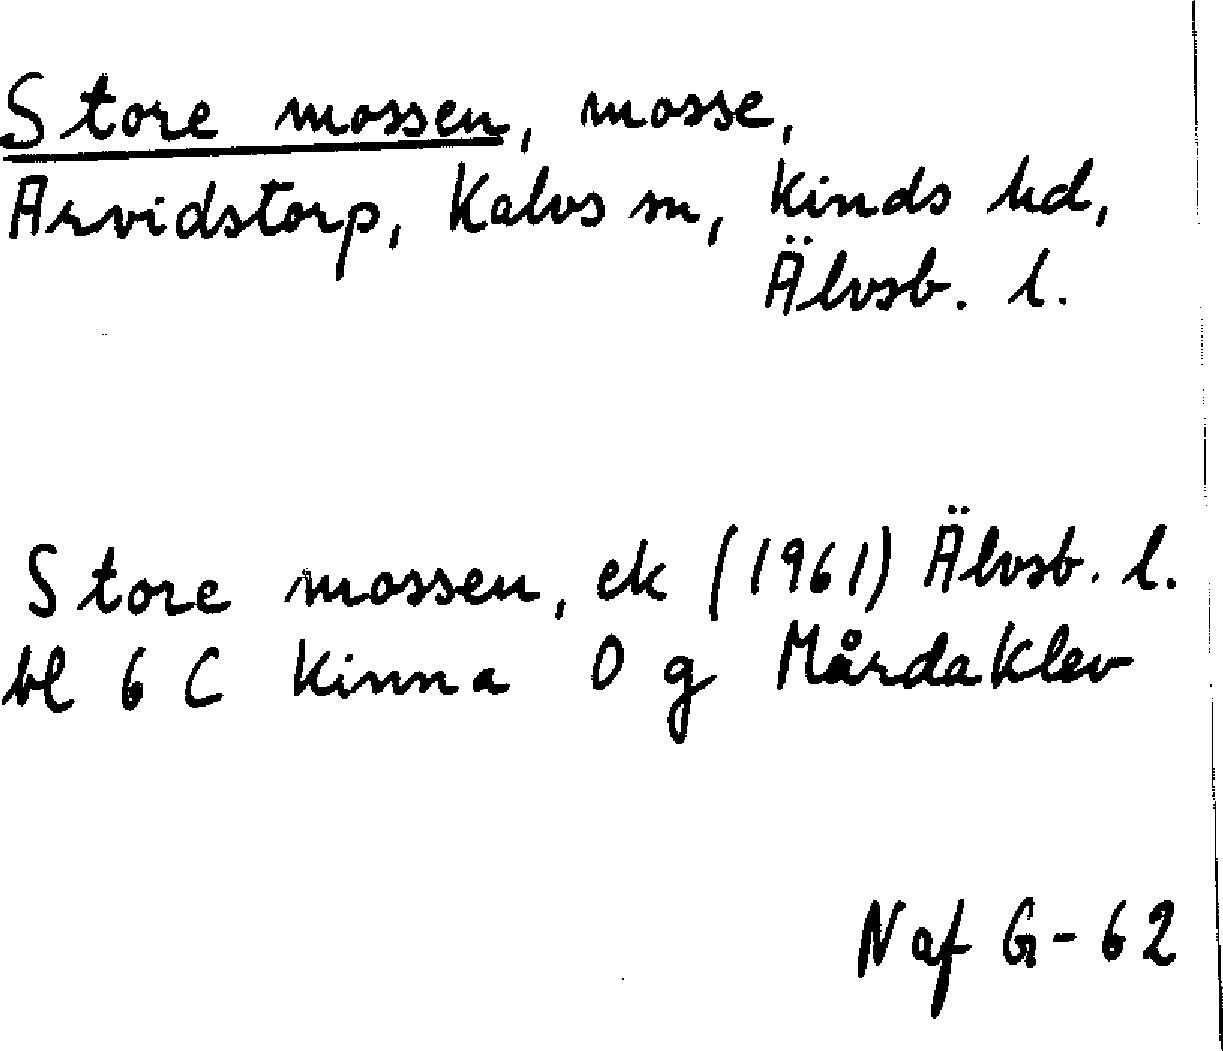 Store mossen, mosse,
Arvidstorp, Kalvs sn, Kinds hd,
Älvsb. l.
Store mossen, ek (1961) Älvsb. l.
bl 6 C Kinna 0 g Mårdaklev
Naf G-62